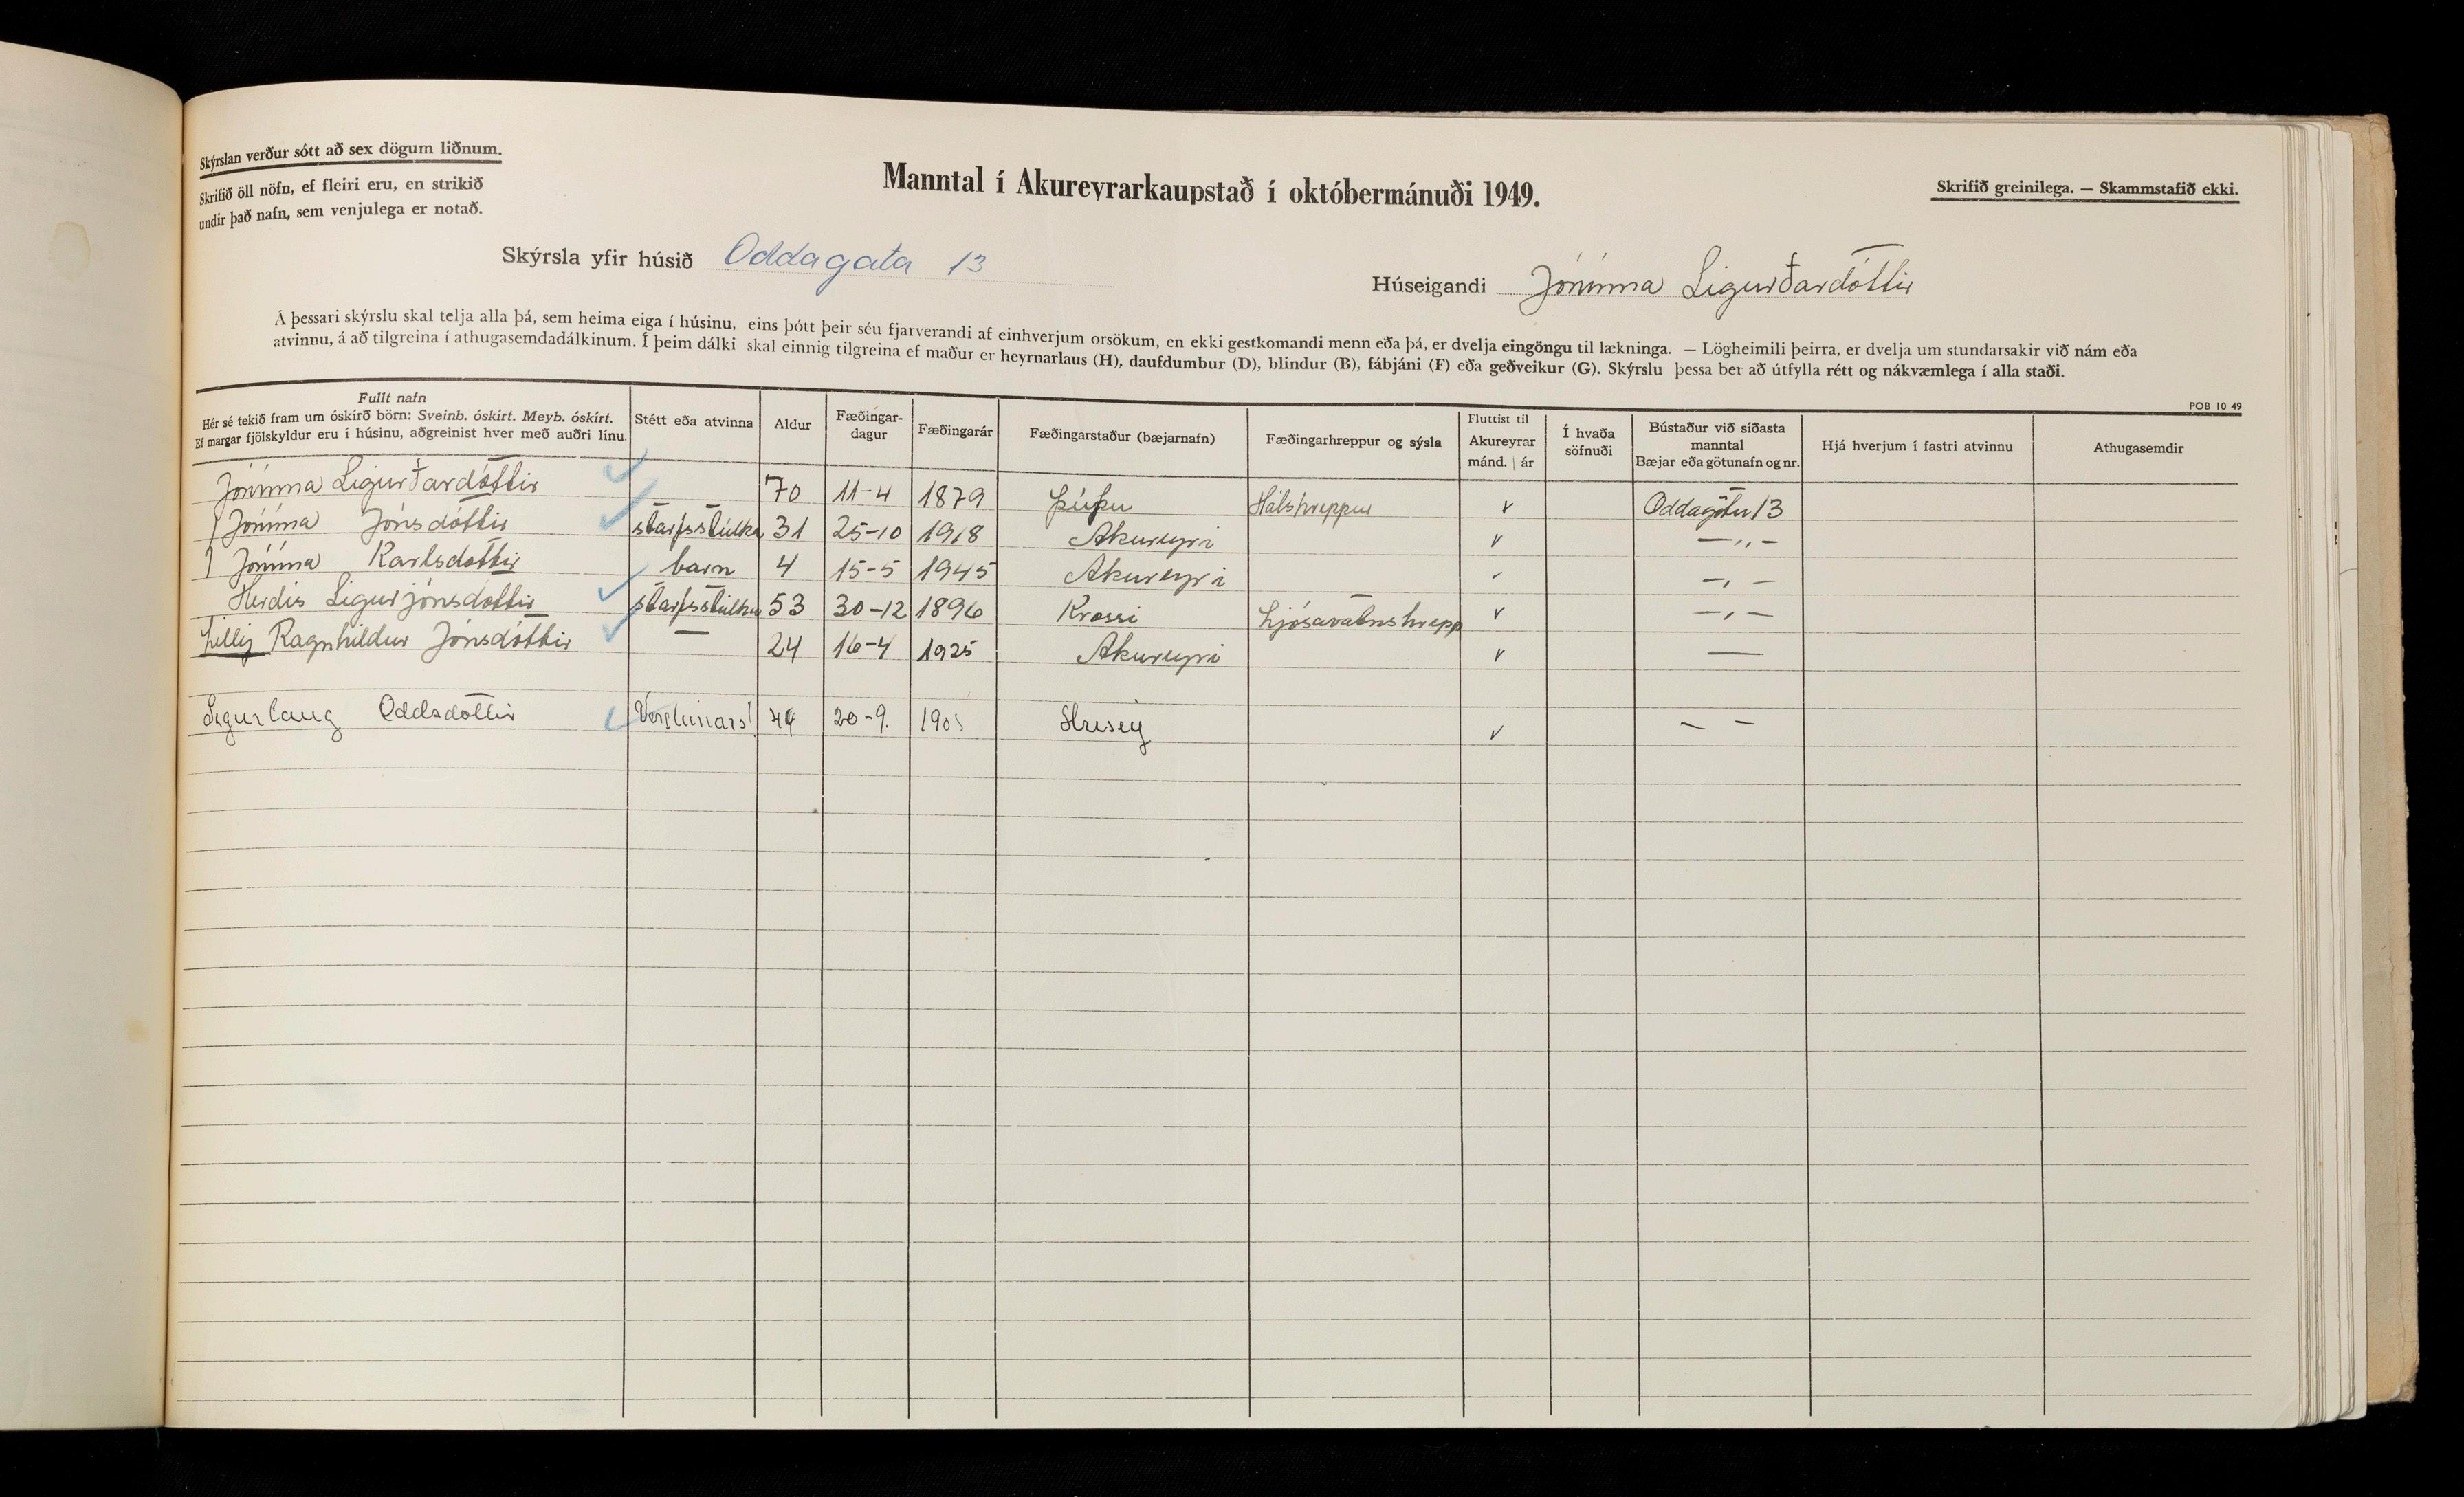 Skýrslan verður sótt að sex dögum liðnum.
Skrifið öll nöfn, ef fleiri eru, en strikið
undir það nafn, sem venjulega er notað.
Manntal í Akureyrarkaupstað í októbermánuði 1949.
Skrifið greinilega. — Skammstafið ekki.
Skýrsla yfir húsið Oddagata 13
Húseigandi Jónína Sigurðardóttir
Á þessari skýrslu skal telja alla þá, sem heima eiga í húsinu, eins þótt þeir séu fjarverandi af einhverjum orsökum, en ekki gestkomandi menn eða þá, er dvelja eingöngu til lækninga. — Lögheimili þeirra, er dvelja um stundarsakir við nám eða
atvinnu, á að tilgreina í athugasemdadálkinum. Í þeim dálki skal einnig tilgreina ef maður er heyrnarlaus (H), daufdumbur (D), blindur (B), fábjáni (F) eða geðveikur (G). Skýrslu þessa ber að útfylla rétt og nákvæmlega í alla staði.
POB 10 49
Fullt nafn
Hér sé tekið fram um óskírð börn: Sveinb. óskírt. Meyb. óskírt.
Ef margar fjölskyldur eru í húsinu, aðgreinist hver með auðri línu.
Stétt eða atvinna
Aldur
Fæðingar-
dagur
Fæðingarár
Fæðingarstaður (bæjarnafn)
Fæðingarhreppur og sýsla
Fluttist til
Akureyrar
mánd. | ár
Í hvaða
söfnuði
Bústaður við síðasta
manntal
Bæjar eða götunafn og nr.
Hjá hverjum í fastri atvinnu
Athugasemdir
Jónína Sigurðardóttir 70 11-4 1879 Þúfu Hálshreppur v Oddagötu 13
Jónína Jónsdóttir starfsstúlka 31 25-10 1918 Akureyri v —,,—
Jónína Karlsdóttir barn 4 15-5 1945 Akureyri —,—
Herdís Sigurjónsdóttir starfsstúlka 53 30-12 1896 Krossi Ljósavatnshrepp v —,—
Lilly Ragnhildur Jónsdóttir — 24 16-4 1925 Akureyri v —
Sigurlaug Oddsdóttir 44 20-9. 1905 Hrísey v — —